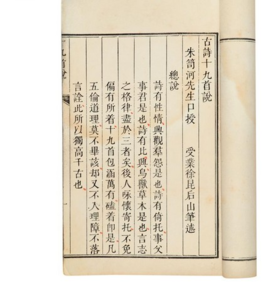 古詩十九首說
朱笥河先生口授 受業徐昆后山筆述
總說
詩有性情興觀羣怨是也詩有倚托事父
事君是也詩有比興鳥獸草木是也言志
之格律盡於三者矣後人咏懷寄托不免
偏有所着十九首包涵萬有磕着即是凡
五倫道理莫不畢該却又不入理障不落
言詮此所以獨高千古也